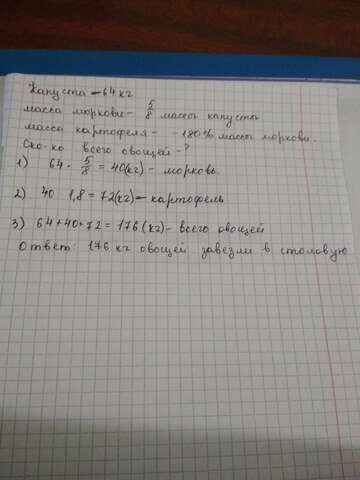 Капуста – 64 кг
масса моркови – 5/8 массы капусты
масса картофеля – – 180% массы моркови.
Ско-ко всего овощей – ?
1) 64 · 5/8 = 40(кг) – морковь.
2) 40 1,8 = 72(кг) – картофель
3) 64+40+72 = 176 (кг) – всего овощей
Ответ: 176 кг овощей завезли в столовую